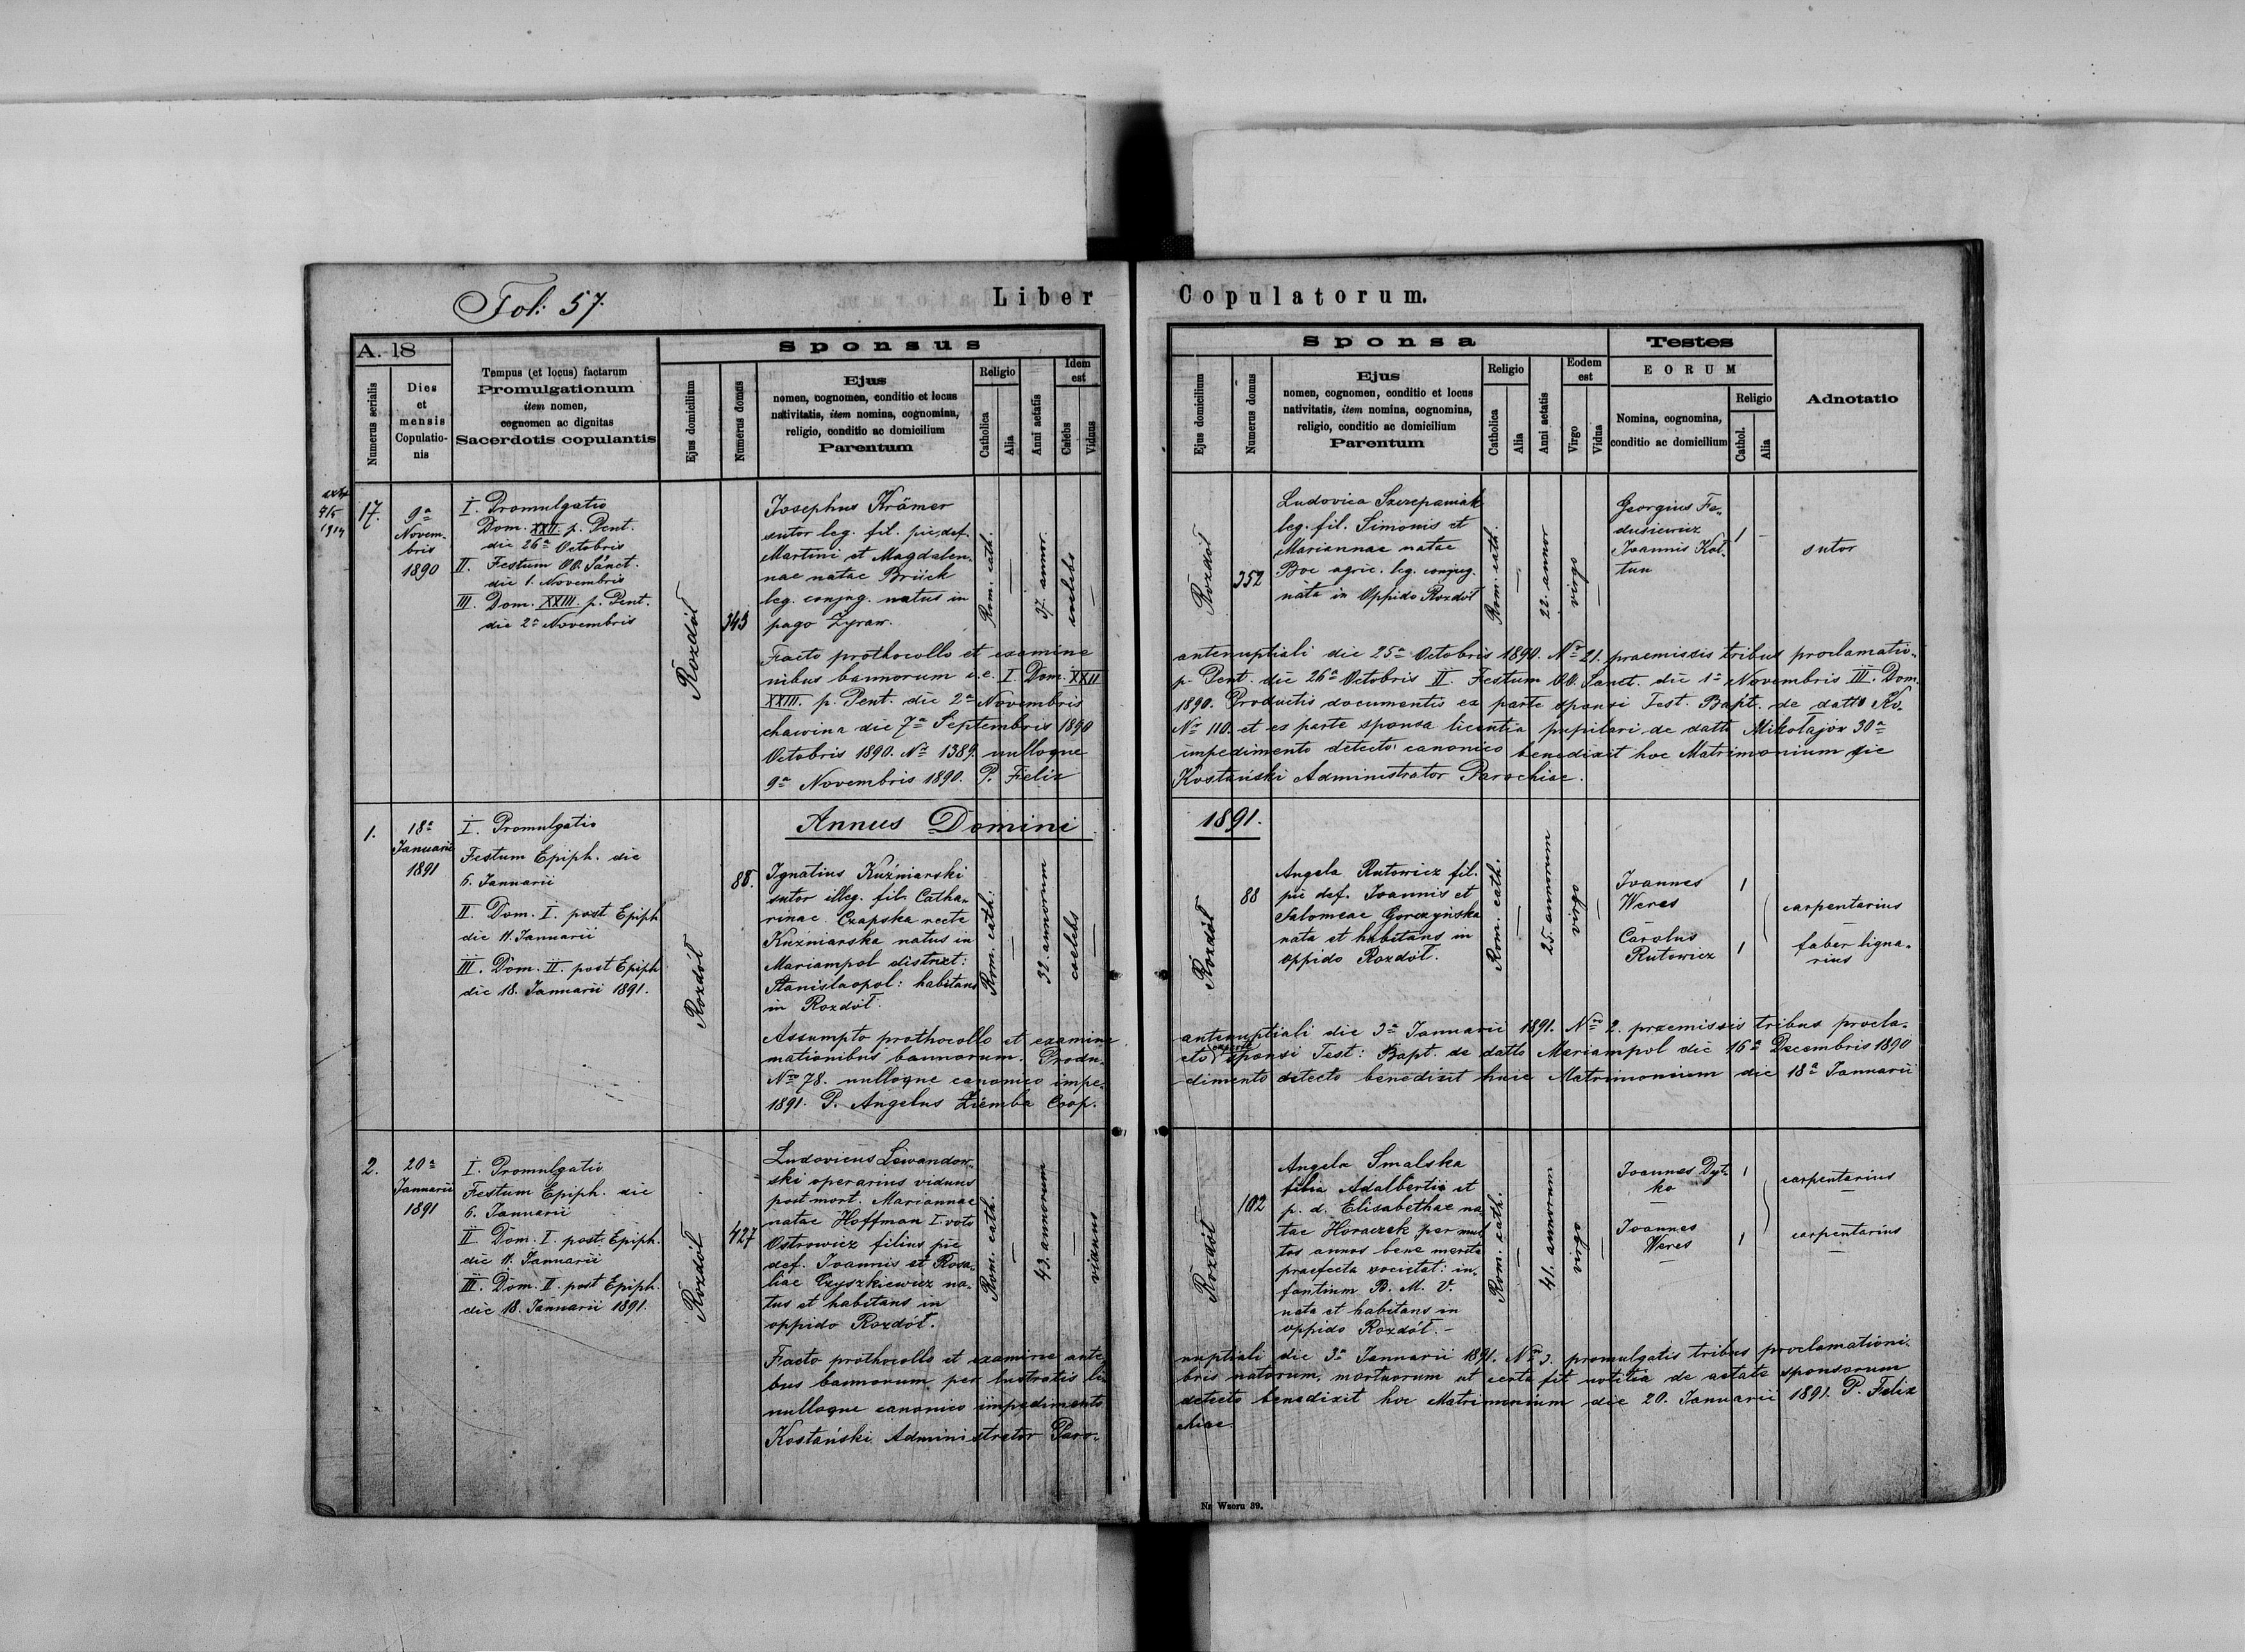 Fol: 57.
Liber Copulatorum.
A. 18
Numerus serialis
Dies
et
mensis
Copulatio-
nis
Tempus (et locus) factarum
Promulgationum
item nomen,
cognomen ac dignitas
Sacerdotis copulantis
Sponsus
Ejus domicilium
Numerus domus
Ejus
nomen, cognomen, conditio et locus
nativitatis, item nomina, cognomina,
religio, conditio ac domicilium
Parentum
Religio
Catholica
Alia
Anni aetatis
Idem
est
Caelebs
Viduus
Sponsa
Ejus domicilium
Numerus domus
Ejus
nomen, cognomen, conditio et locus
nativitatis, item nomina, cognomina,
religio, conditio ac domicilium
Parentum
Religio
Catholica
Alia
Anni aetatis
Eodem
est
Virgo
Vidua
Testes
EORUM
Nomina, cognomina,
conditio ac domicilium
Religio
Cathol.
Alia
Adnotatio
1914
17.
9a
Novem-
bris
1890
I. Promulgatio
Dom. XXII. p. Pent.
die 26a Octobris
II. Festum OO. Sanct.
die 1. Novembris
III. Dom. XXIII. p. Pent.
die 2a Novembris
Rozdół
343
Josephus Krämer
sutor leg. fil. pie def.
Martini et Magdalen-
nae natae Brück
leg. conjug. natus in
pago Zyraw.
Rom. cath.
37. annor.
coelebs
Rozdół
352
Ludovica Szczepaniak
leg. fil. Simonis et
Mariannae natae
Boc agric. leg. conjug.
nata in Oppido Rozdół
Rom. cath.
22. annor
virgo
Georgius Fe-
dusiewicz
Joannis Koł-
tun
sutor
Facto prothocollo et examine antenuptiali die 25a Octobris 1890. No 21. praemissis tribus proclamatio-
nibus bannorum i.e. I. Dom. XXII p. Pent. die 26a Octobris II. Festum OO. Sanct. die 1a Novembris III. Dom.
XXIII. p. Pent. die 2a Novembris 1890. Productis documentis ex parte sponsi Test. Bapt. de datto Ko-
chawina die 7a Septembris 1890 No 110. et ex parte sponsa licentia pupilari de datto Mikołajów 30a
Octobris 1890. No 1389. nulloque impedimento detecto canonico benedixit hoc Matrimonium die
9a Novembris 1890. P. Felix Kostański Administrator Parochiae.
Annus Domini 1891.
1.
18a
Januarii
1891
I. Promulgatio
Festum Epiph. die
6. Januarii
II. Dom. I. post Epiph
die 11. Januarii
III. Dom. II. post Epiph
die 18. Januarii 1891.
Rozdół
88.
Ignatius Kuźniarski
sutor illeg. fil. Catha-
rinae Czapska recte
Kuźniarska natus in
Mariampol district:
Stanislaopol: habitans
in Rozdół.
Rom. cath:
32. annorum
coelebs
Rozdół
88
Angela Rutowicz fil.
pie def. Joannis et
Salomeae Gorczyńska
nata et habitans in
oppido Rozdół.
Rom. cath.
25. annorum
virgo
Joannes
Weres
Carolus
Rutowicz
carpentarius
faber ligna-
rius
Assumpto prothocollo et examine antenuptiali die 3a Januarii 1891. Nro 2. praemissis tribus procla-
mationibus bannorum. Produ- cto ex parte sponsi Test: Bapt. de datto Mariampol die 16a Decembris 1890
Nro 78. nulloque canonico impe- dimento detecto benedixit huic Matrimonium die 18a Januarii
1891. P. Angelus Ziemba Coop.
2.
20a
Januarii
1891
I. Promulgatio
Festum Epiph. die
6. Januarii
II. Dom. I. post. Epiph.
die 11. Januarii
III. Dom. II. post Epiph.
die 18. Januarii 1891.
Rozdół
427
Ludovicus Lewandow-
ski operarius viduus
post mort. Mariannae
natae Hoffman I. voto
Ostrowicz filius pie
def. Joannis et Rosa-
liae Czyszkiewicz na-
tus et habitans in
oppido Rozdół.
Rom. cath
43. annorum
viduus
Rozdół
102
Angela Smalska
filia Adalbertii et
p. d. Elisabethae na-
tae Horaczek per mul
tos annos bene merita
praefecta societat: in-
fantium B. M. V.
nata et habitans in
oppido Rozdół. -
Rom. cath.
41. annorum
virgo
Joannes Dyt-
ko
Joannes
Weres
carpentarius
carpentarius
Facto prothocollo et examine ante nuptiali die 3a Januarii 1891. Nro 3. promulgatis tribus proclamationi-
bus bannorum per lustratis li- bris natorum, mortuorum ut certa fit notitia de aetate sponsorum
nulloque canonico impedimento detecto benedixit hoc Matrimonium die 20. Januarii 1891. P. Felix
Kostański Administrator Paro- chiae
Nr Wzoru 39.